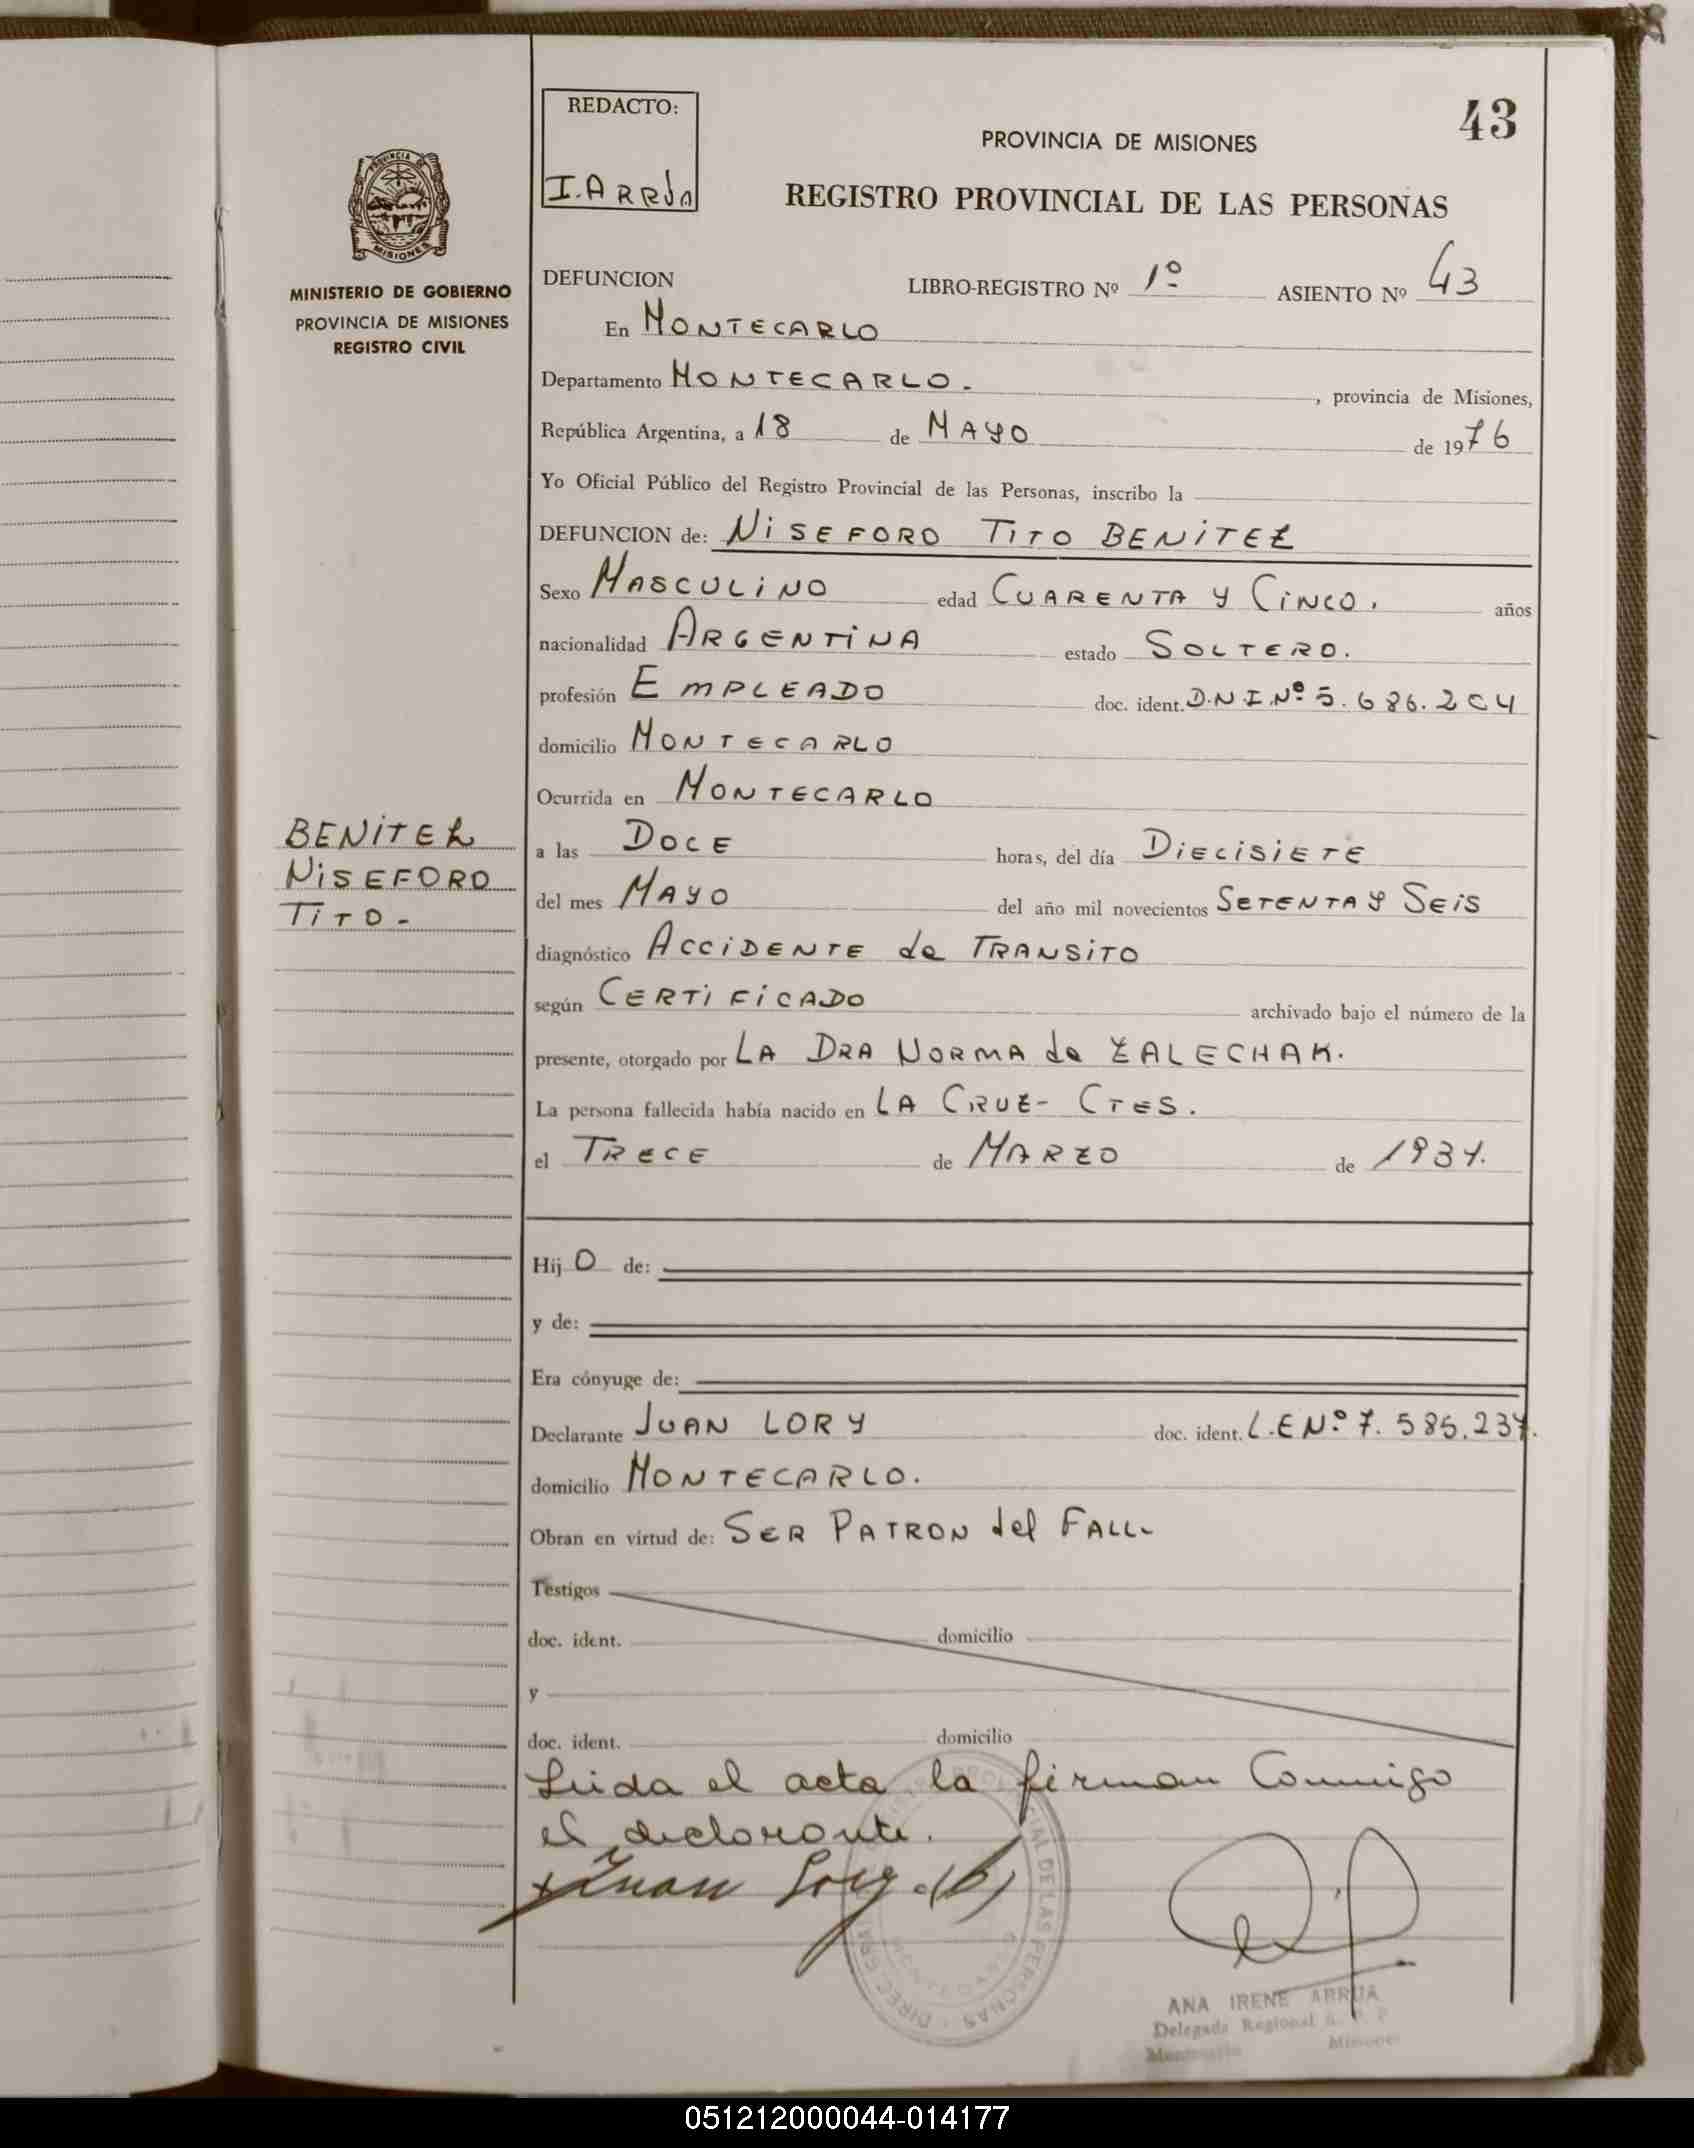 43
REDACTO:
I. ARRUA
PROVINCIA DE MISIONES
REGISTRO PROVINCIAL DE LAS PERSONAS
PROVINCIA DE
MISIONES
MINISTERIO DE GOBIERNO
PROVINCIA DE MISIONES
REGISTRO CIVIL
DEFUNCION LIBRO-REGISTRO Nº 1º ASIENTO Nº 43
En MONTECARLO
Departamento MONTECARLO. , provincia de Misiones,
República Argentina, a 18 de MAYO de 1976
Yo Oficial Público del Registro Provincial de las Personas, inscribo la
DEFUNCION de: NISEFORO TITO BENITEZ
Sexo MASCULINO edad CUARENTA Y CINCO. años
nacionalidad ARGENTINA estado SOLTERO.
profesión EMPLEADO doc. ident. D.N.I. Nº 5.686.204
domicilio MONTECARLO
Ocurrida en MONTECARLO
BENITEZ
NISEFORO
TITO-
a las DOCE horas, del día DIECISIETE
del mes MAYO del año mil novecientos SETENTA Y SEIS
diagnóstico ACCIDENTE de TRANSITO
según CERTIFICADO archivado bajo el número de la
presente, otorgado por LA DRA NORMA de ZALECHAK.
La persona fallecida había nacido en LA CRUZ- CTES.
el TRECE de MARZO de 1931.
Hij O de:
y de:
Era cónyuge de:
Declarante JUAN LORY doc. ident. L.E Nº 7.585.237.
domicilio MONTECARLO.
Obran en virtud de: SER PATRON del FALL-
Testigos
doc. ident. domicilio
y
doc. ident. domicilio
Leida el acta la firman Conmigo
el declarante.
Juan Lory (h)
ANA IRENE ARRUA
Delegada Regional R. P. P
Montecarlo Misiones
051212000044-014177